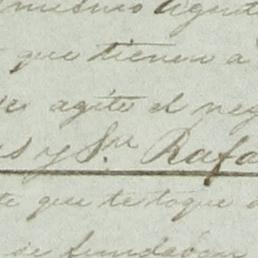 mismo Agent
que tienen a
agite el neg
y Sn Rafa
que te toque
se fundaron